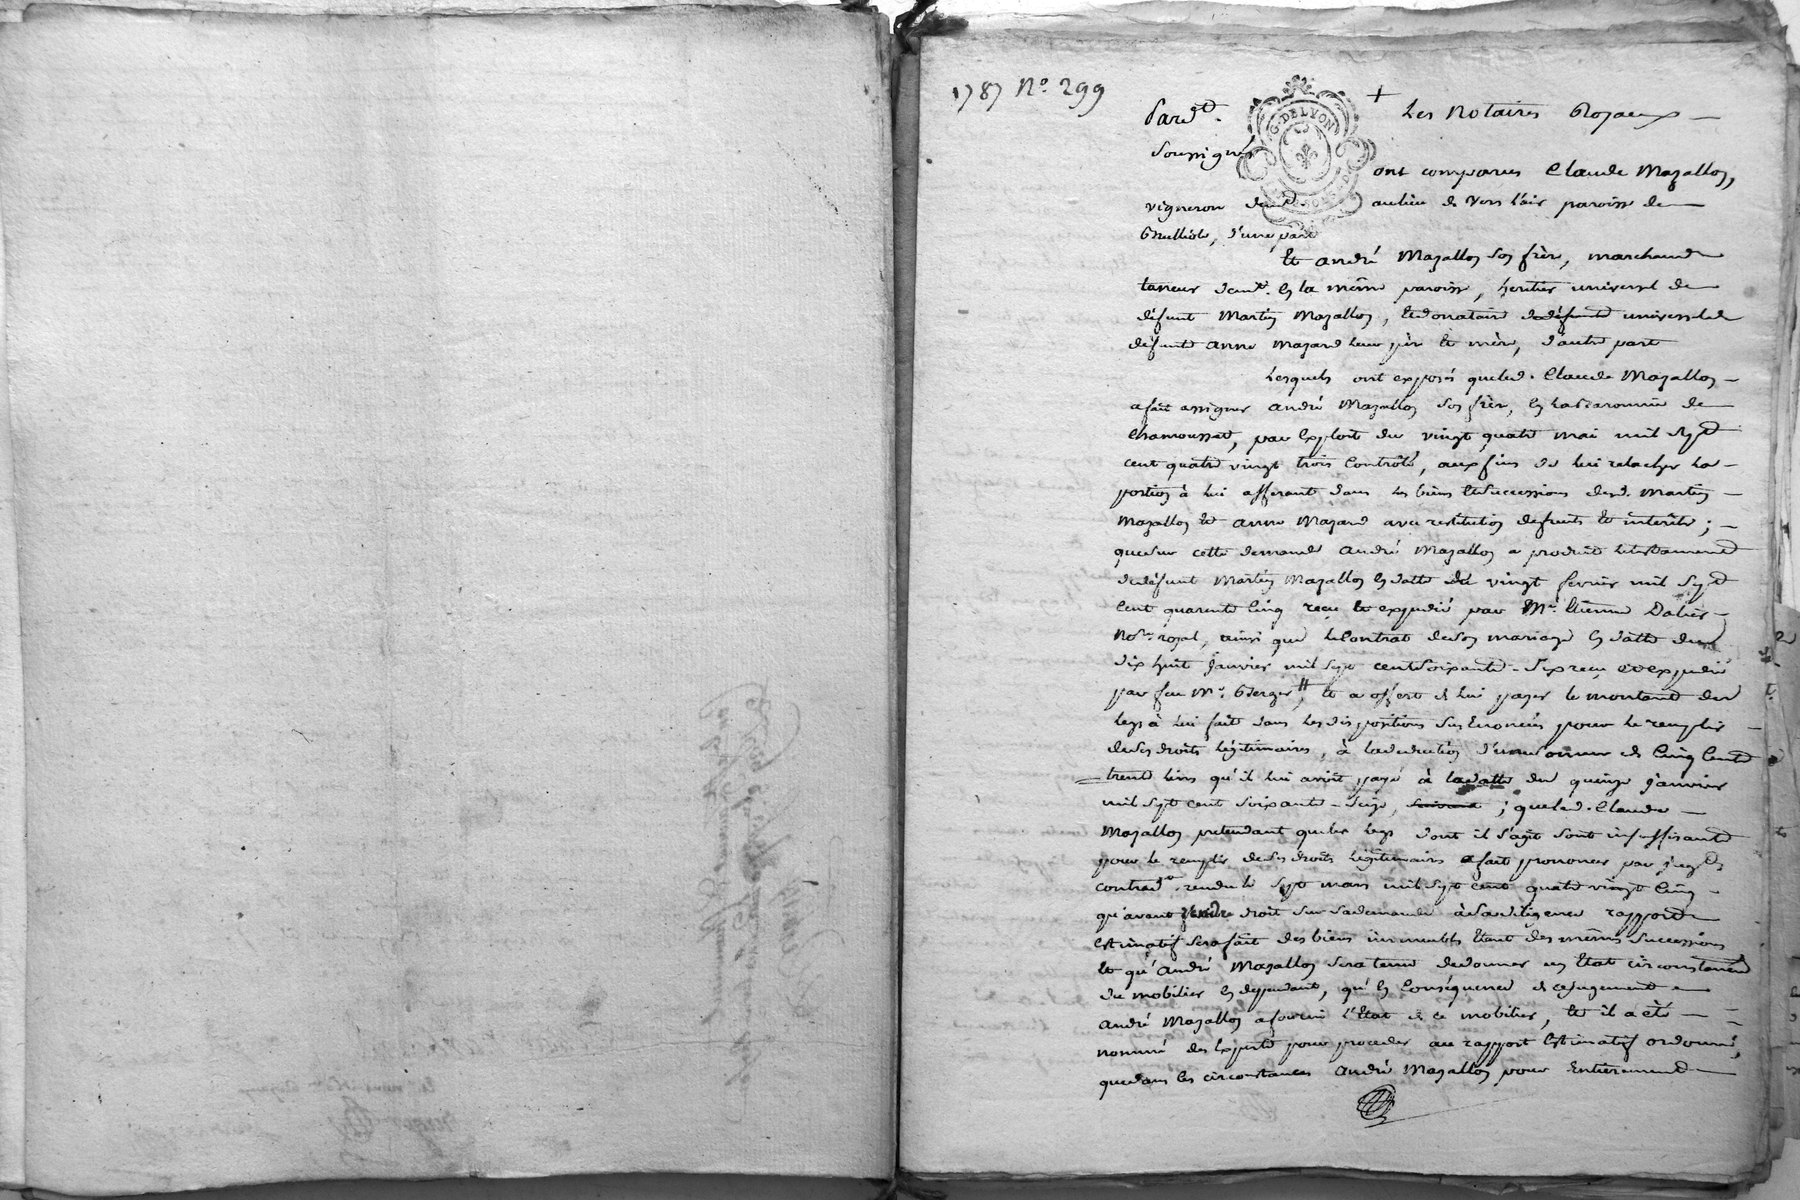 1787 N.º 299
Pard.t Les Notaires Royaux
Soussignés
G. DE LYON
ont comparus Claude Mazallon,
vigneron dem.t au lieu de Vers l'air paroisse de
Brulliole, d'une part
Et André Mazallon son frère, marchand
tanneur dem.t en la même paroisse, heritier universel de
défunt Martin Mazallon, et donataire universel de
défunte Anne Mazard leur père et mère, d'autre part
Lesquels ont exposés que led. Claude Mazallon
a fait assigner André Mazallon son frère, en la Baronnie de
Chamousset, par exploit du vingt quatre mai mil sept
cent quatre vingt trois controlé, aux fins de lui relacher la
portion à lui afferant dans les biens et successions desd. Martin
Mazallon et Anne Mazard avec restitution de fruits et interêts ;
que sur cette demande André Mazallon a produit le testament
du défunt Martin Mazallon en datte du vingt fevrier mil sept
cent quarente cinq reçu et expedié par M.e Etienne Dalier
No.re royal, ainsi que le Contrat de son mariage en datte du
dix huit janvier mil sept cent soixante-six reçu et expedié
par feu M.e Berger, et a offert de lui payer le montant du
legs à lui fait dans les dispositions sus énoncées pour le remplir
de ses droits légitimaires, à la déduction d'une somme de cinq cent
trente livres qu'il lui avoit payé à la datte du quinze janvier
mil sept cent soixante-seize, ; que led. Claude
Mazallon pretendant que les legs dont il s'agit sont insuffisants
pour le remplir de ses droits légitimaires a fait prononcer par jug.t
contrad.re rendu le sept mars mil sept cent quatre vingt cinq
qu'avant rendre droit sur sa demande à sa diligence rapport
estimatif sera fait des biens immeubles étant des mêmes successions
et qu'André Mazallon sera tenu de donner un Etat circonstancié
du mobilier en dependant, qu'en conséquence de ce jugement
André Mazallon a fourni l'Etat de ce mobilier, et il a été
nommé des Experts pour proceder au rapport estimatif ordonné,
que dans les circonstances André Mazallon pour entierement